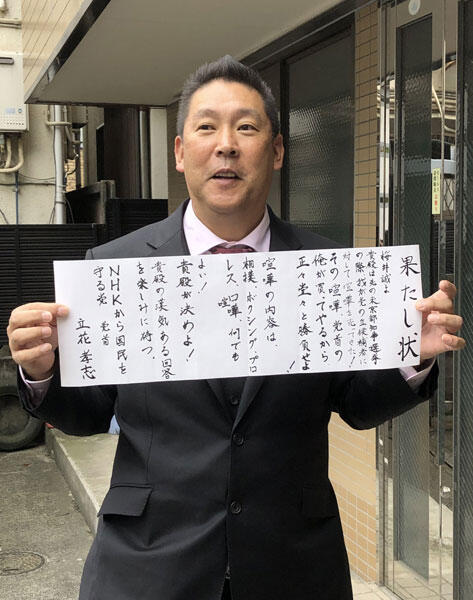 果たし状
桜井誠よ
貴殿は先の東京都知事選挙
の際我が党の立候補者に
対して喧嘩を売ってきた!
その喧嘩 党首の
俺が買ってやるから
正々堂々と勝負せよ!
喧嘩の内容は、
相撲、ボクシング、プロ
レス、口喧嘩 何でも
よい!
貴殿が決めよ!
貴殿の漢気ある回答
を楽しみに待つ。
NHKから国民を
守る党 党首
立花孝志